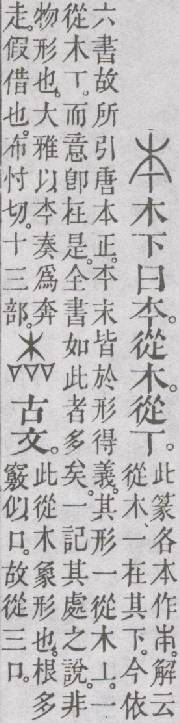 木下曰本。從木。從丅。
此篆各本作本。解云
從木一在其下。今依
六書故所引唐本正。本末皆於形得義。其形一從木丄。一
從木丅。而意卽在是。全書如此者多矣。一記其處之說。非
物形也。大雅以本奏爲奔
走。假借也。布忖切。十三部。
古文。
此從木象形也。根多
竅似口。故從三口。